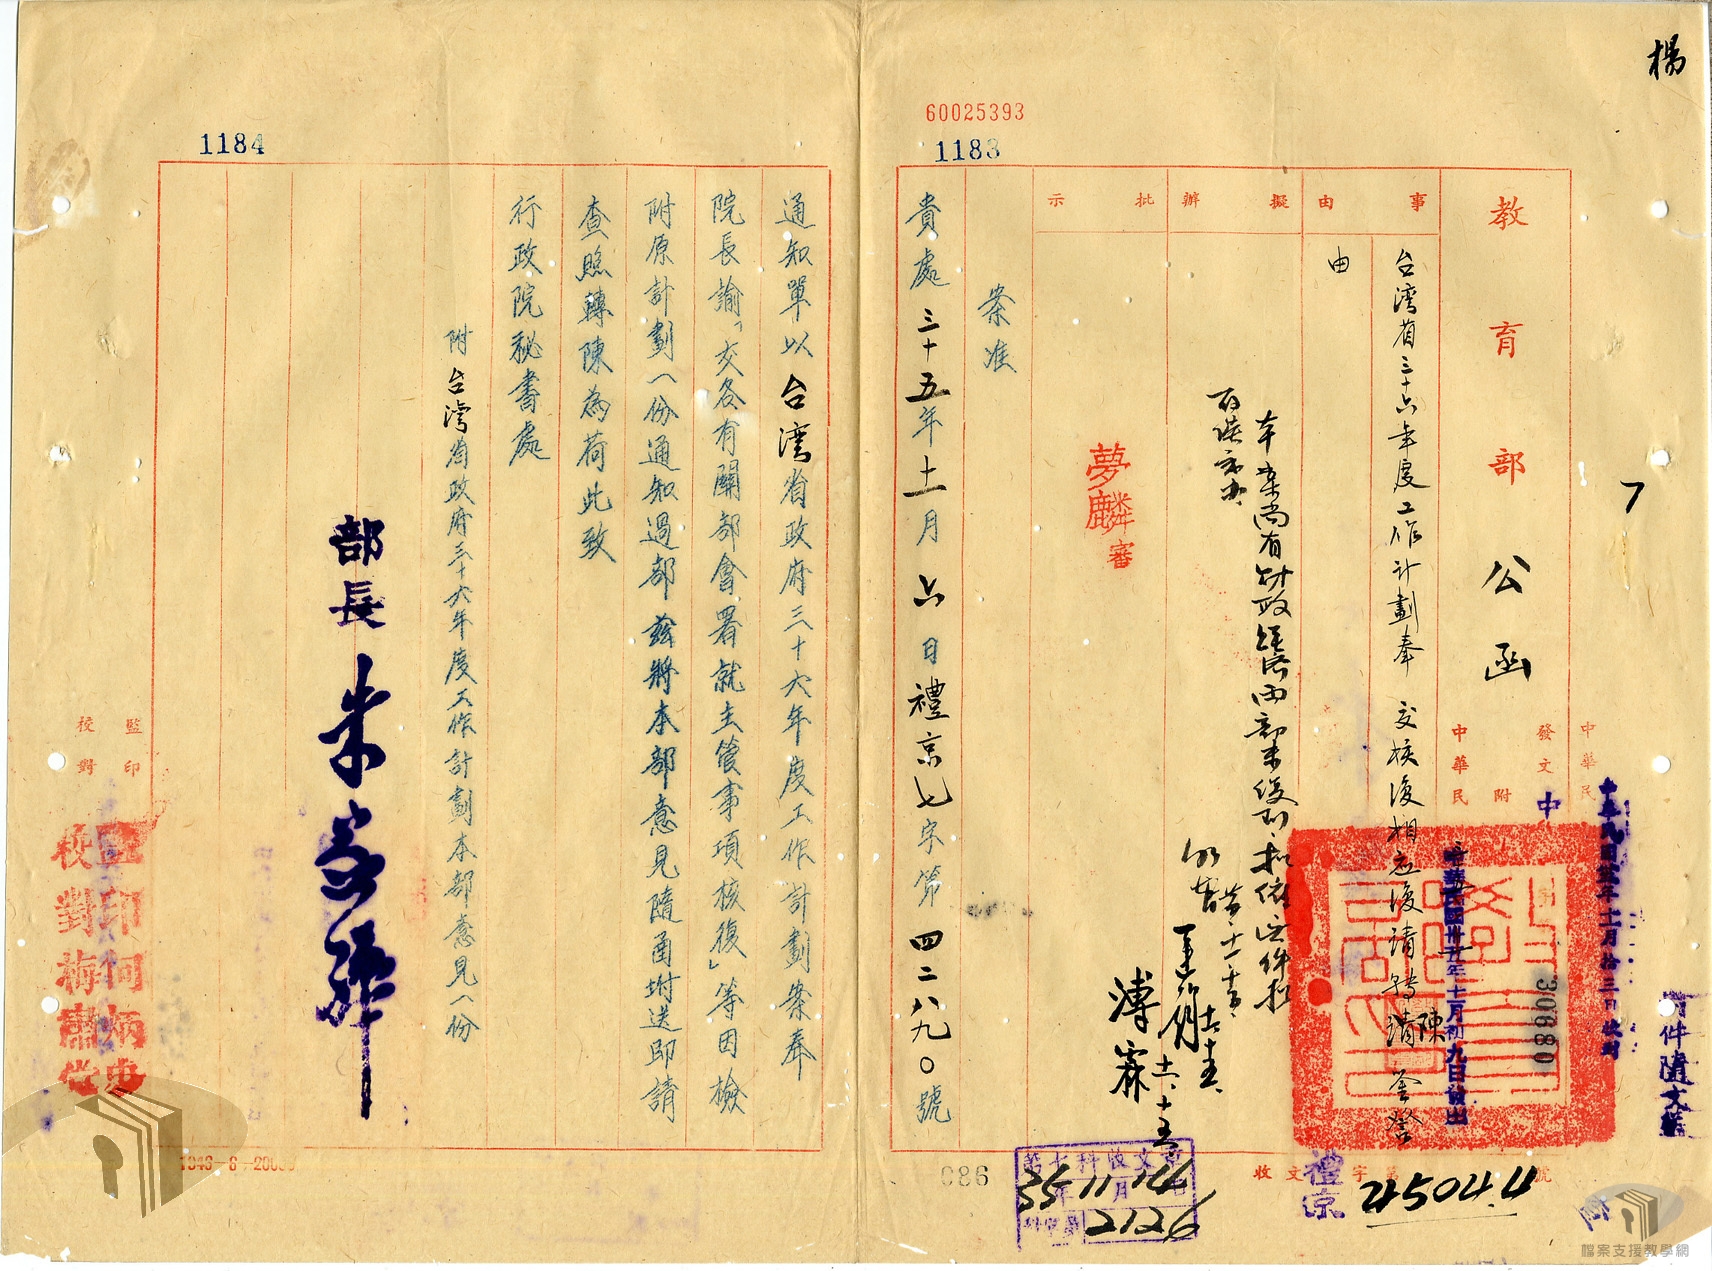 楊
7
60025393
1183
教育部公函
中華民
發文
附
中華民
中
30680
中華民國卅五年十一月初九日發出
附件隨文
事
由
台湾省三十六年度工作計劃奉 交核復相应復請轉陳
由
擬
辦
本案尚有財政經濟兩部未復到
批
示
夢麟審
溥霖
案准
貴處三十五年十一月六日禮京七字第四二八九〇號
收文 字第 號
禮京
45044
第七科收文章
35年11月14日
2126
086
1184
通知單以台湾省政府三十六年度工作計劃案奉
院長諭「交各有關部會署就主管事項核復」等因檢
附原計劃一份通知過部茲將本部意見隨函坿送即請
查照轉陳為荷此致
行政院秘書處
附台湾省政府三十六年度工作計劃本部意見一份
部長朱家驊
監印
校對
監印何炳忠
校對梅肅
檔案支援教學網